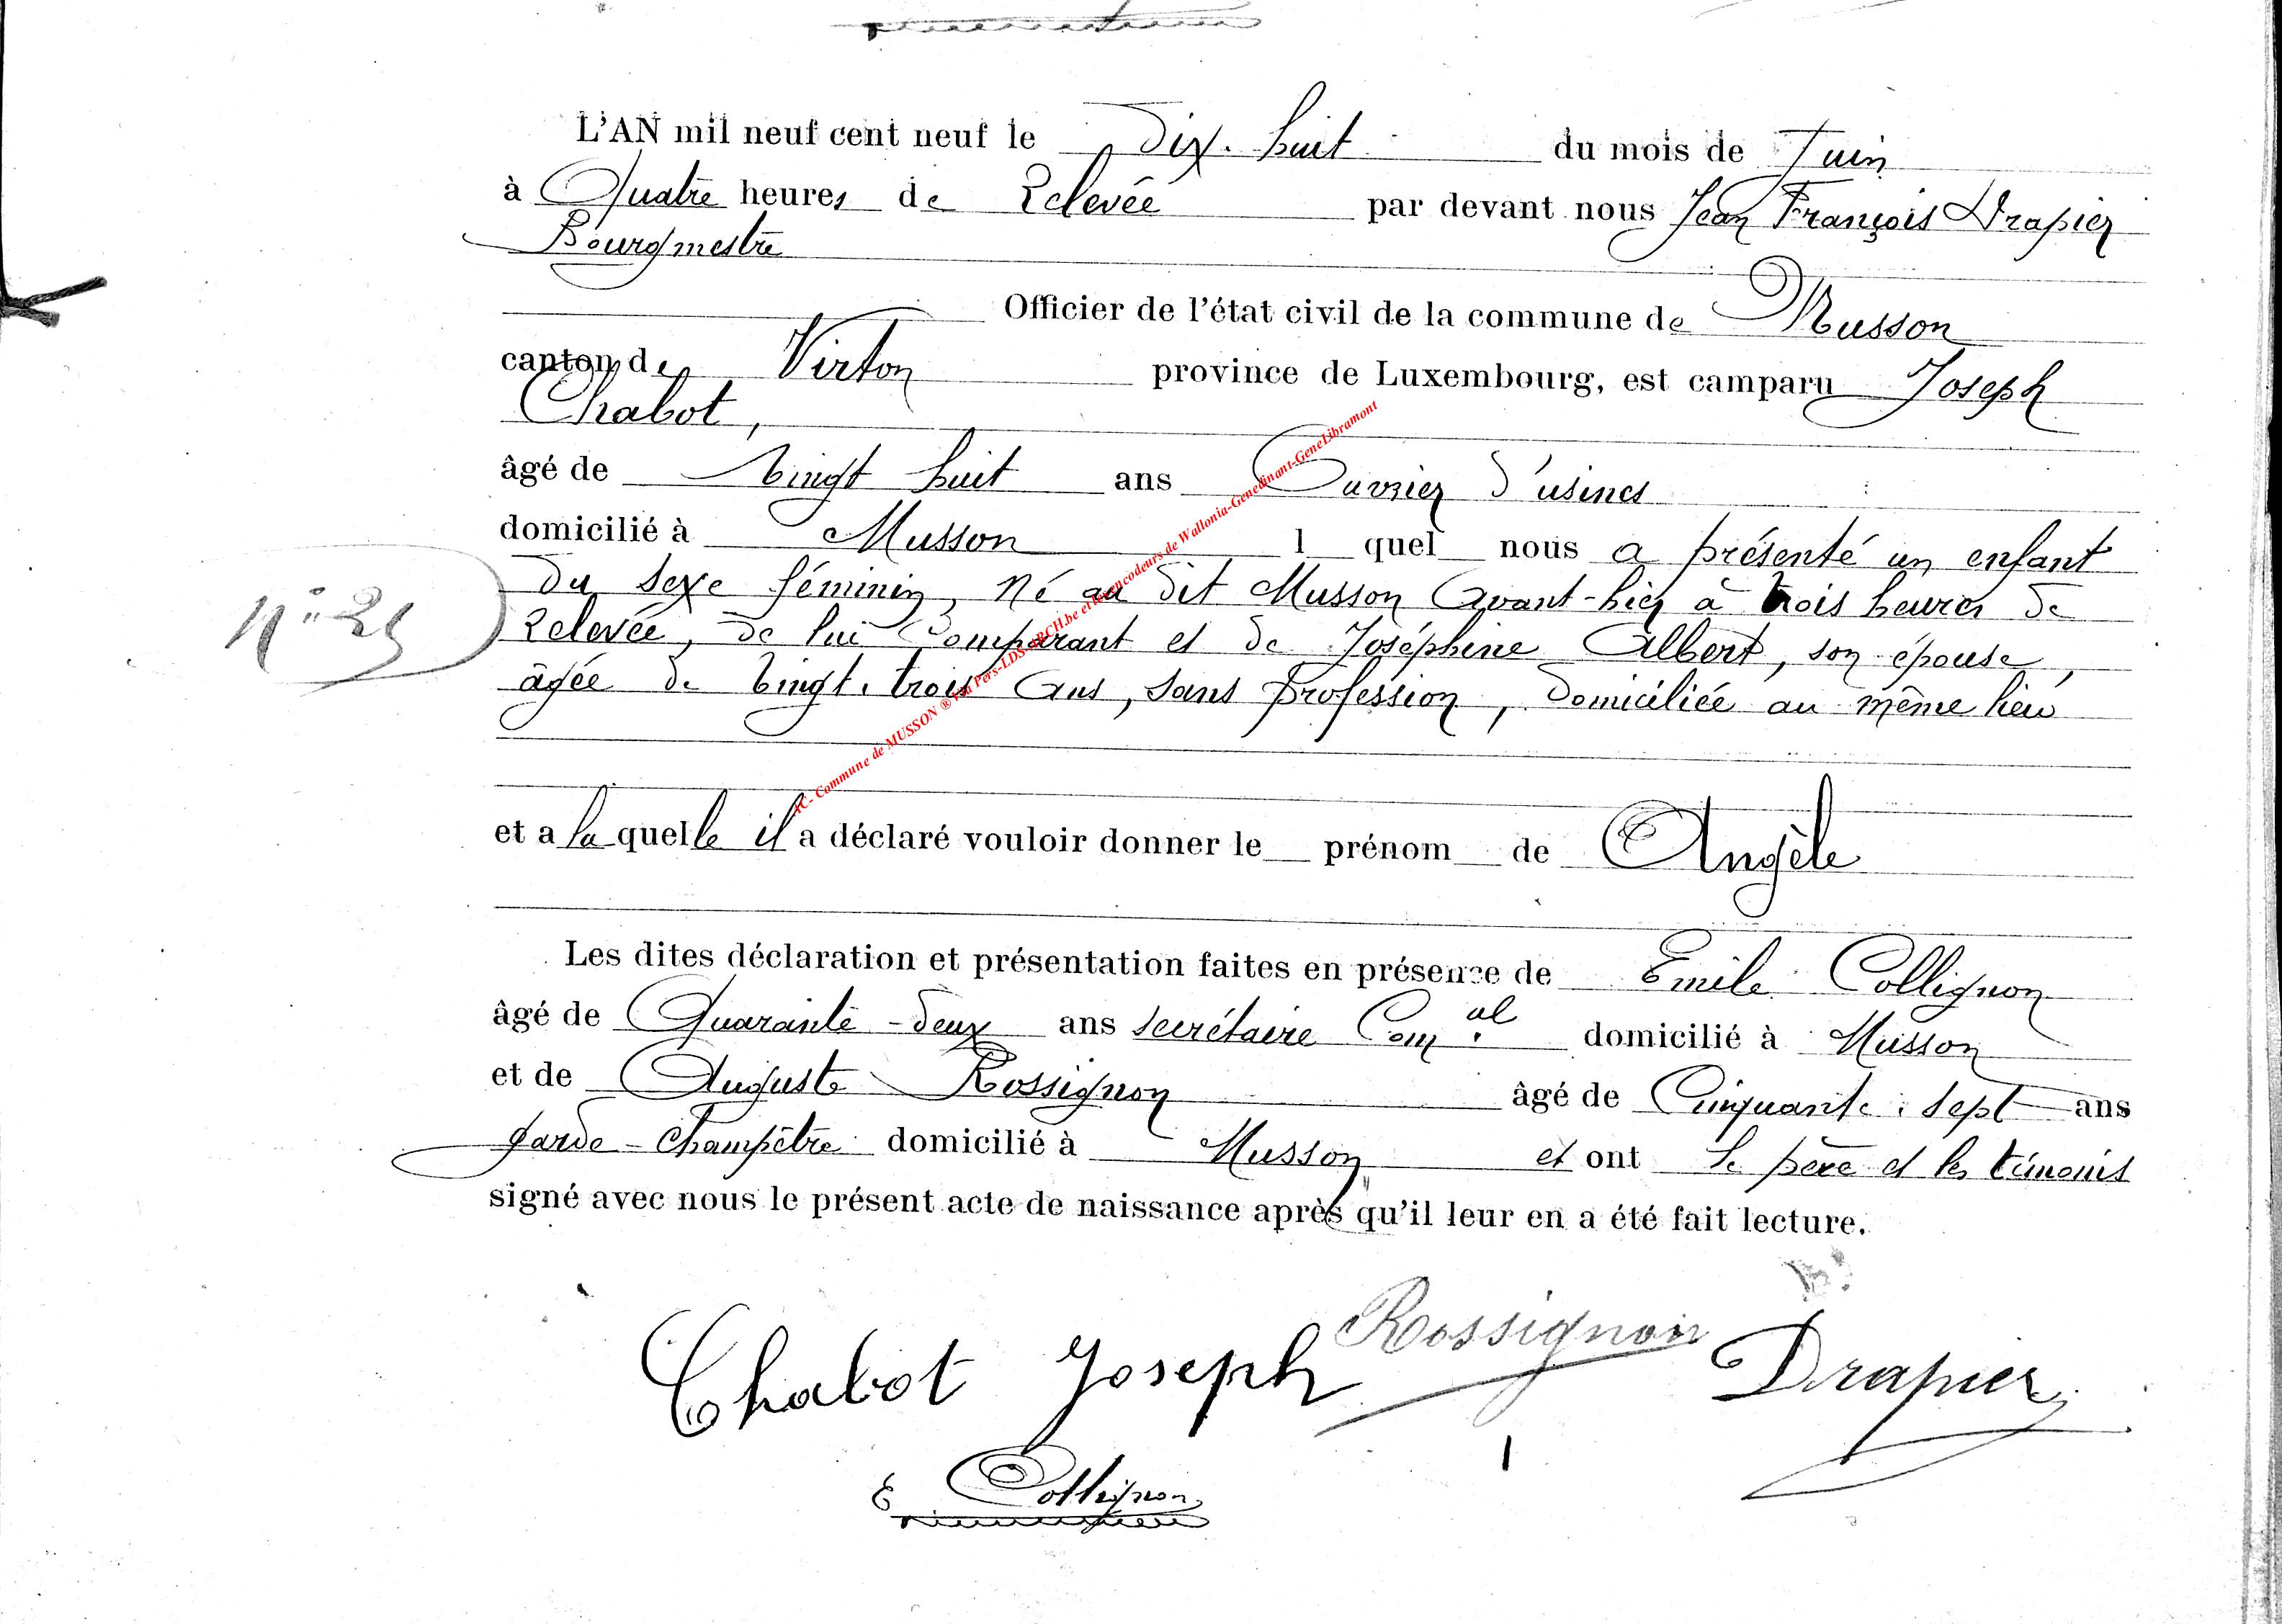 L'AN mil neuf cent neuf le Dix-huit du mois de Juin
à Quatre heures de Relevée par devant nous Jean François Drapier
Bourgmestre
Officier de l'état civil de la commune de Musson
canton de Virton province de Luxembourg, est camparu Joseph
Chabot,
âgé de vingt huit ans Ouvrier d'usines
domicilié à Musson l quel nous a présenté un enfant
du sexe féminin, né au dit Musson avant-hier à trois heures de
Relevée, de lui Comparant et de Joséphine Albert, son épouse,
âgée de vingt-trois ans, sans profession, domiciliée au même lieu
N°
et a la quelle il a déclaré vouloir donner le prénom de Angèle
Les dites déclaration et présentation faites en présence de Emile Collignon
âgé de Quarante-deux ans secrétaire Com.al domicilié à Musson
et de Auguste Rossignon âgé de Cinquante-sept ans
garde-Champêtre domicilié à Musson et ont le père et les témoins
signé avec nous le présent acte de naissance après qu'il leur en a été fait lecture.
Rossignon
Chabot Joseph Drapier
E Collignon
AC- Commune de MUSSON ® Via Pers-LDS-ARCH.be et les encodeurs de Wallonia-Genedinant-GeneLibramont